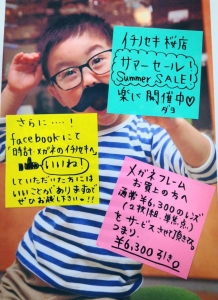 イチノセキ桜店
サマーセール!
Summer SALE!
楽に開催中♡
さらに....!
facebookにて
「時計 メガネのイチノセキ」
いいね!
していただいた方には
いいことがありますので
ぜひお越し下さい!!
メガネフレーム
お買上の方へ
通常¥6,300のレンズ
をサービスさせて頂きます。
つまり、
¥6,300引き。